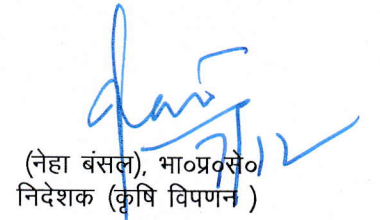 7/12
(नेहा बंसल), भा०प्र०से०
निदेशक (कृषि विपणन )